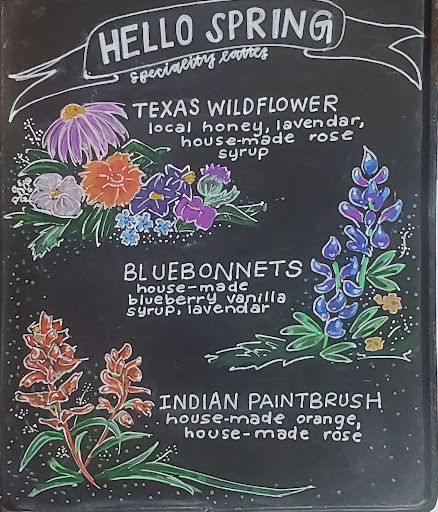 HELLO SPRING
speciality lattes
TEXAS WILDFLOWER
local honey, lavendar,
house-made rose
syrup
BLUEBONNETS
house-made
blueberry vanilla
syrup, lavendar
INDIAN PAINTBRUSH
house-made orange,
house-made rose